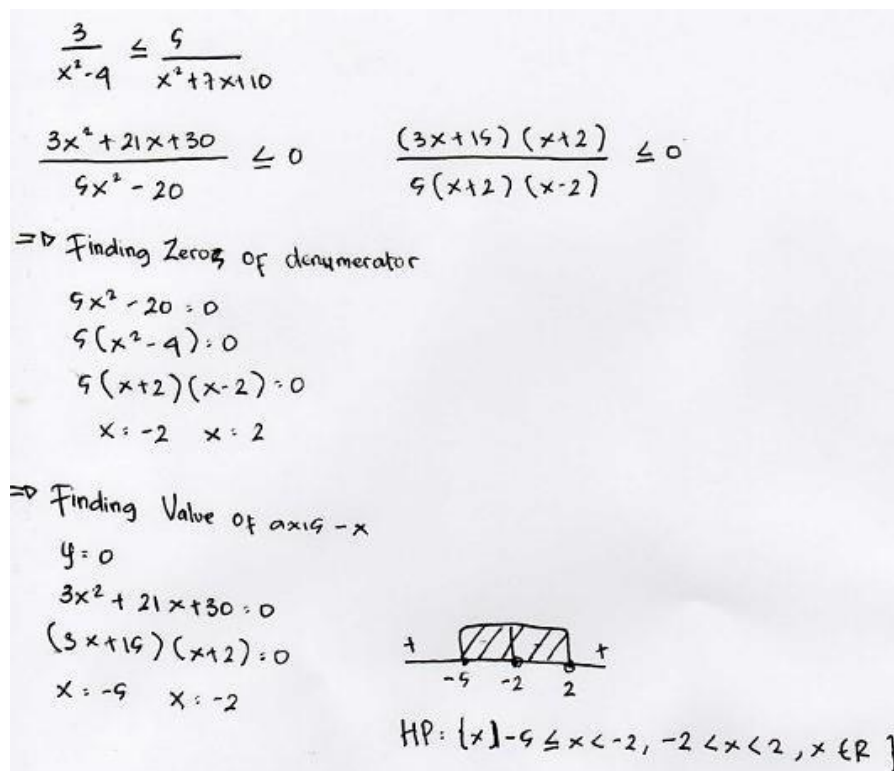 3/(x²-4) ≤ 5/(x²+7x+10)
(3x²+21x+30)/(5x²-20) ≤ 0    ((3x+15)(x+2))/(5(x+2)(x-2)) ≤ 0
=> Finding Zeros of denumerator
5x²-20=0
5(x²-4)=0
5(x+2)(x-2)=0
x=-2 x=2
=> Finding Value of axis-x
y=0
3x²+21x+30=0
(3x+15)(x+2)=0
x=-5 x=-2
+ - +
-5 -2 2
HP: {x|-5≤x<-2, -2<x<2, x∈R}